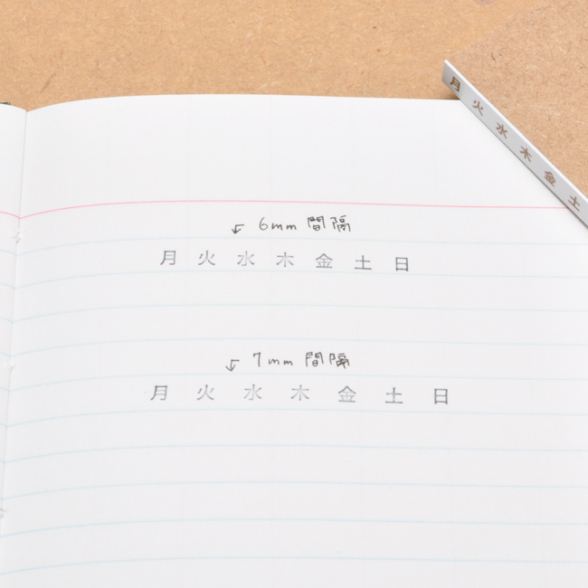 月 火 水 木 金 土
6mm 間隔
月 火 水 木 金 土 日
7mm 間隔
月 火 水 木 金 土 日